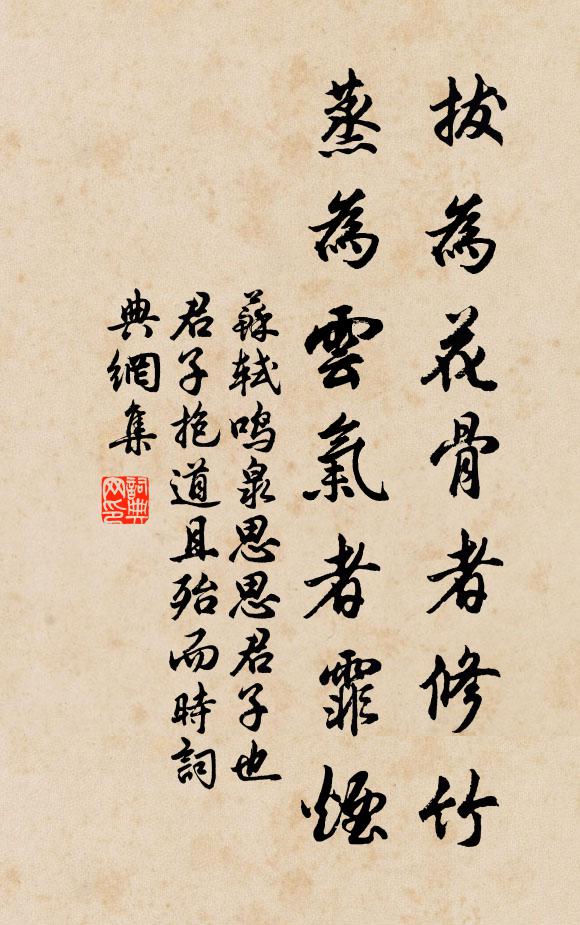 拔為花骨者修竹
蒸為雲氣者霏煙
蘇軾鳴泉思思君子也
君子抱道且殆而時詞
典網集
詞典
网印